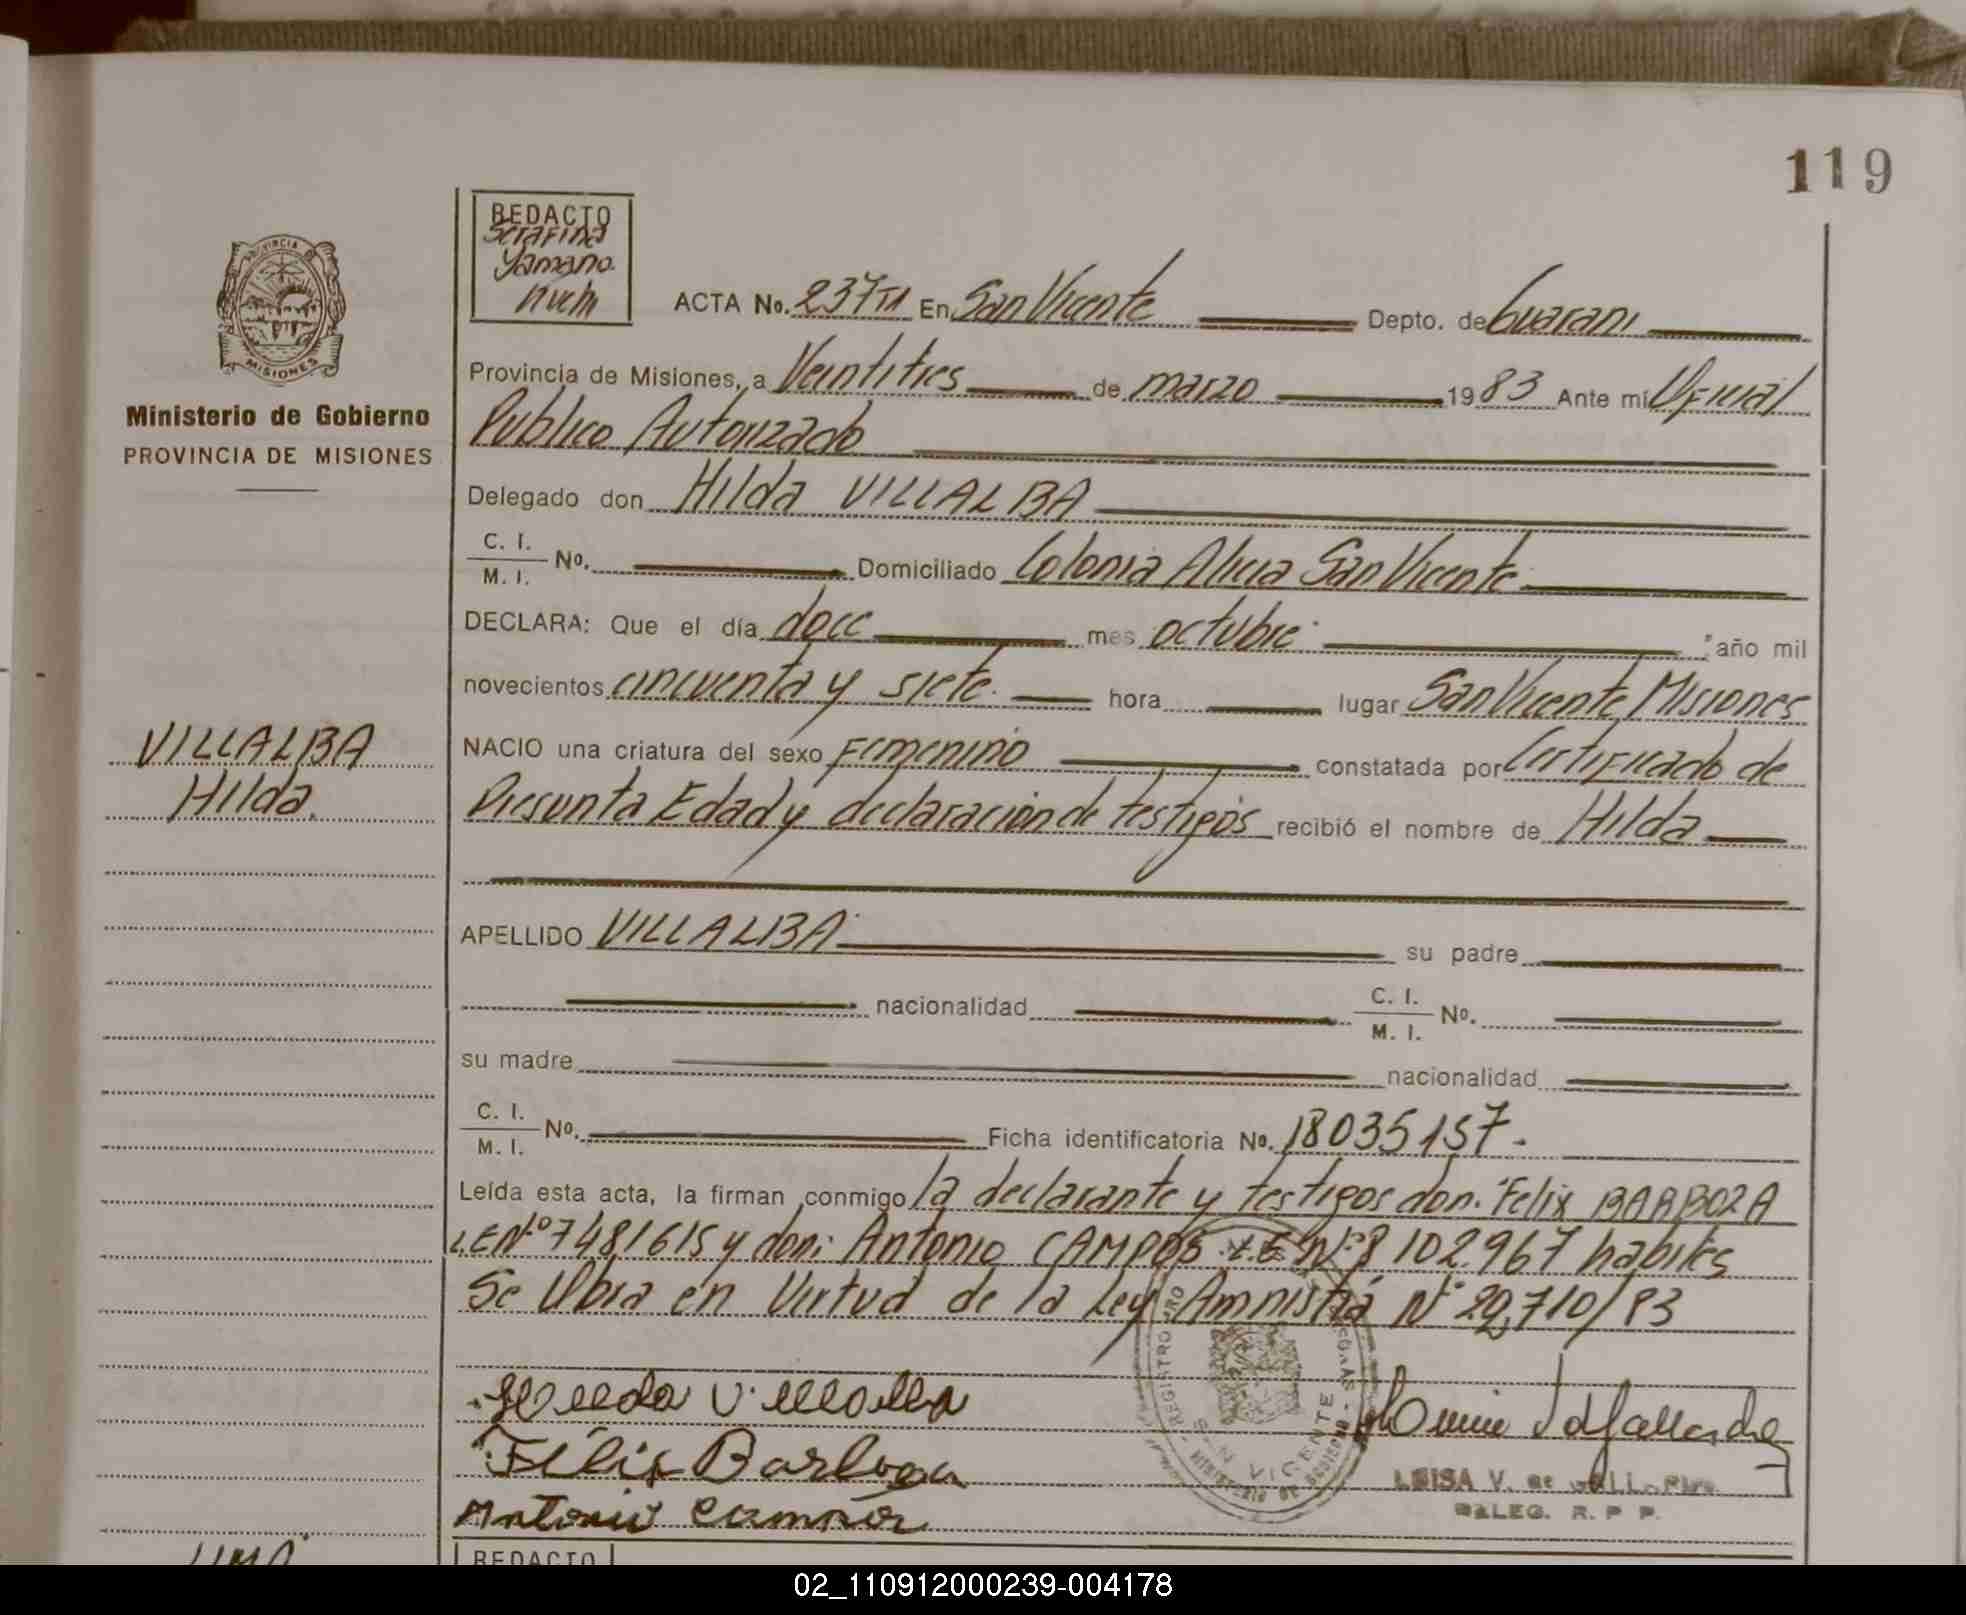 119
REDACTO
Serafina
Yamano
Kuchi
PROVINCIA DE
MISIONES
ACTA No. 237 TI En San Vicente Depto. de Guarani
Ministerio de Gobierno
PROVINCIA DE MISIONES
Provincia de Misiones, a Veintitres de marzo 1983 Ante mí Oficial
Publico Autorizado
Delegado don Hilda VILLALBA
C. I.
M. I. No. Domiciliado Colonia Alicia San Vicente
DECLARA: Que el día doce mes octubre ; año mil
novecientos cincuenta y siete. hora lugar San Vicente Misiones
VILLALBA
Hilda.
NACIO una criatura del sexo Femenino constatada por Certificado de
Presunta Edad y declaración de testigos recibió el nombre de Hilda
APELLIDO VILLALBA su padre
nacionalidad C. I.
M. I. No.
su madre nacionalidad
C. I.
M. I. No. Ficha identificatoria No. 18035157.
Leída esta acta, la firman conmigo la declarante y testigos don: Felix BARBOZA
L.E Nº 7481615 y don: Antonio CAMPOS L.E Nº 8 102.967 habiles
Se labra en Virtud de la Ley Amnistia Nº 22,710/83
Hilda Villalba
Felix Barboza
Antonio Campos
REGISTRO
VICENTE
MINISTERIO DE GOBIERNO
LUISA V. de GALLARDO
DELEG. R. P P.
REDACTO
02_110912000239-004178